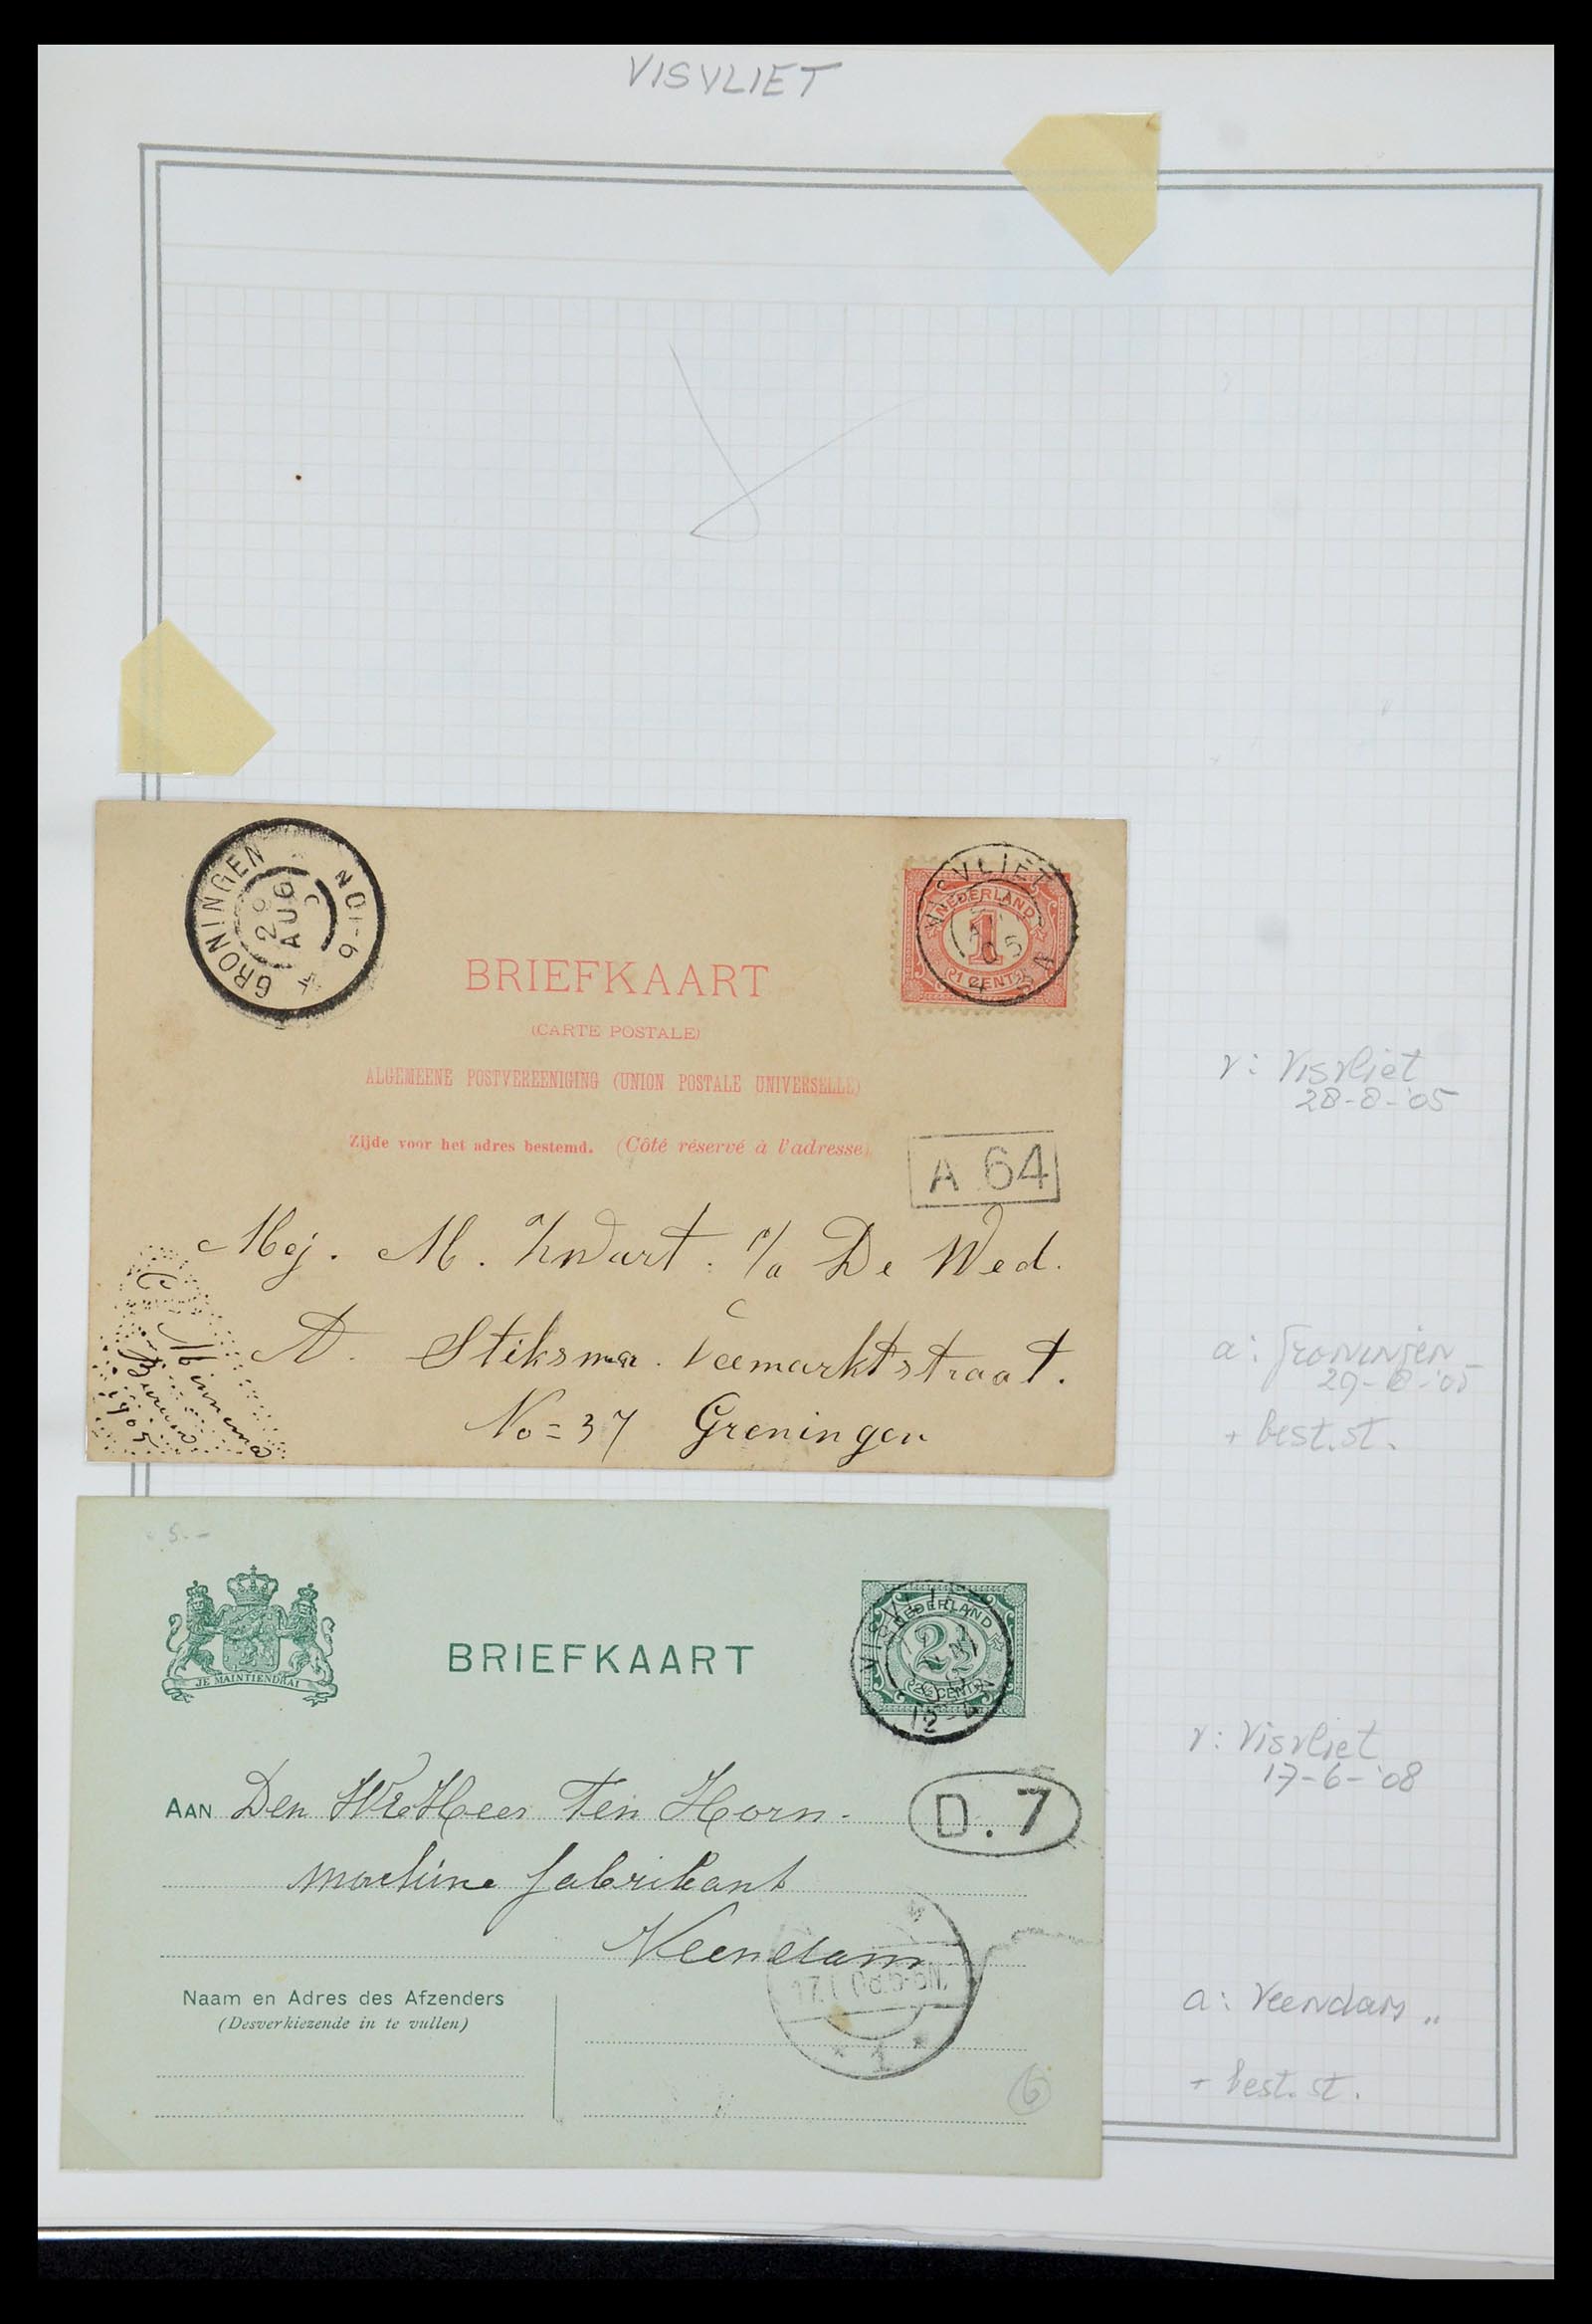 VISVLIET
GRONINGEN 4
29 AUG
VISVLIET
NEDERLAND
1
1 CENT
BRIEFKAART
(CARTE POSTALE)
ALGEMEENE POSTVEREENIGING (UNION POSTALE UNIVERSELLE)
Zijde voor het adres bestemd. (Côté réservé à l'adresse)
A 64
v: Visvliet
28-8-'05
Mej. M. Zwart. p/a De Wed.
A. Stiksma. Veemarktstraat.
No = 37 Groningen
Minnema
1905
a: Groningen
29-8-'05
+ best.st.
5.-
JE MAINTIENDRAI
BRIEFKAART
NEDERLAND
2½
2½ CENT
12-2N
v: Visvliet
17-6-'08
AAN Den Heer Ten Horn.
D. 7
machine fabrikant
Veendam
Naam en Adres des Afzenders
(Desverkiezende in te vullen)
1
a: Veendam „
+ best. st.
6